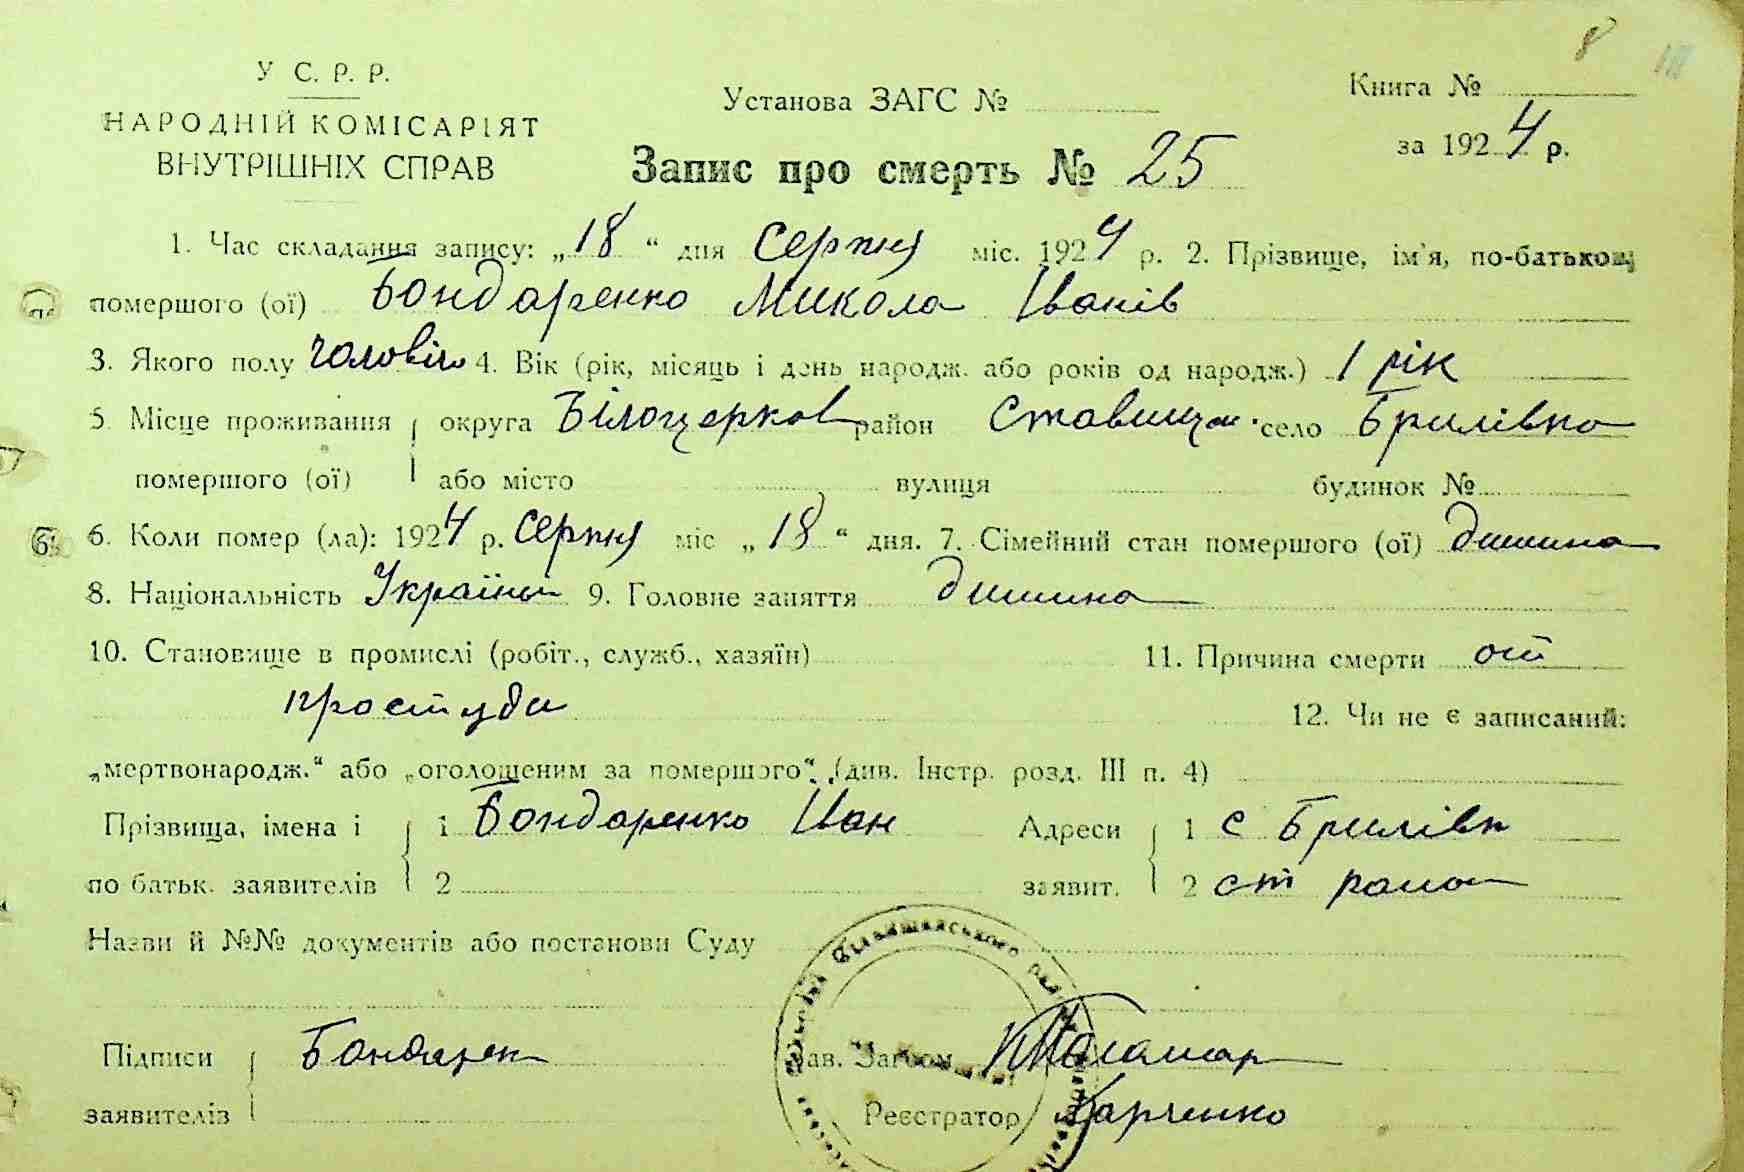 8
У С. Р. Р.
НАРОДНІЙ КОМІСАРІЯТ
ВНУТРІШНІХ СПРАВ
Установа ЗАГС №
Книга №
за 1924 р.
Запис про смерть № 25
1. Час складання запису: „18“ дня Серпня міс. 1924 р. 2. Прізвище, ім'я, по-батькові
помершого (ої) Бондаренко Микола Іванів
3. Якого полу чоловіч 4. Вік (рік, місяць і день народж. або років од народж.) 1 рік
5. Місце проживання округа Білоцерков район Ставищан село Брилівка
помершого (ої) або місто вулиця будинок №
6. Коли помер (ла): 1924 р. Серпня міс „18“ дня. 7. Сімейний стан помершого (ої) дитина
8. Національність Україн 9. Головне заняття дитина
10. Становище в промислі (робіт., служб., хазяїн) 11. Причина смерти от
простуди
12. Чи не є записаний:
„мертвонародж.“ або „оголошеним за помершого“. (див. Інстр. розд. III п. 4)
Прізвища, імена і 1 Бондаренко Іван Адреси 1 с Брилівк
по батьк. заявителів 2 заявит. 2 ст района
Назви й №№ документів або постанови Суду
Підписи Бондарен Зав. Загсом
заявителів Реєстратор Харченко